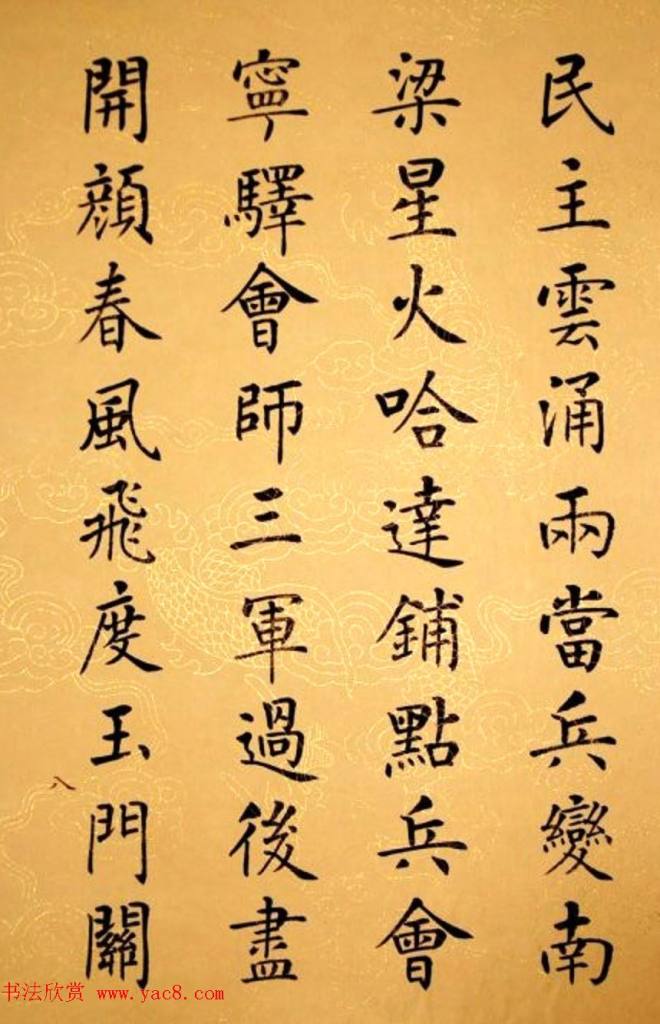 民主雲涌兩當兵變南
梁星火哈達鋪點兵會
寧驛會師三軍過後盡
開顔春風飛度玉門關
八
书法欣赏 www.yac8.com